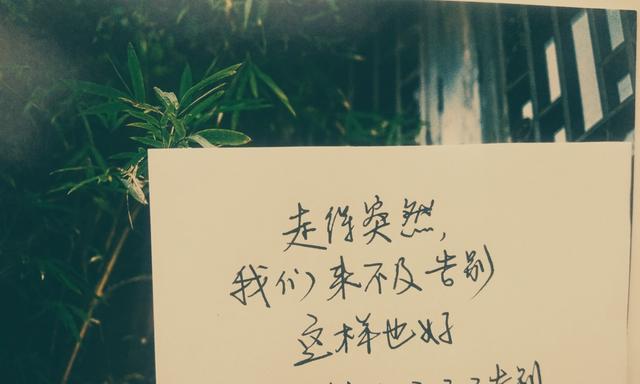 走得突然，
我们来不及告别
这样也好
告别